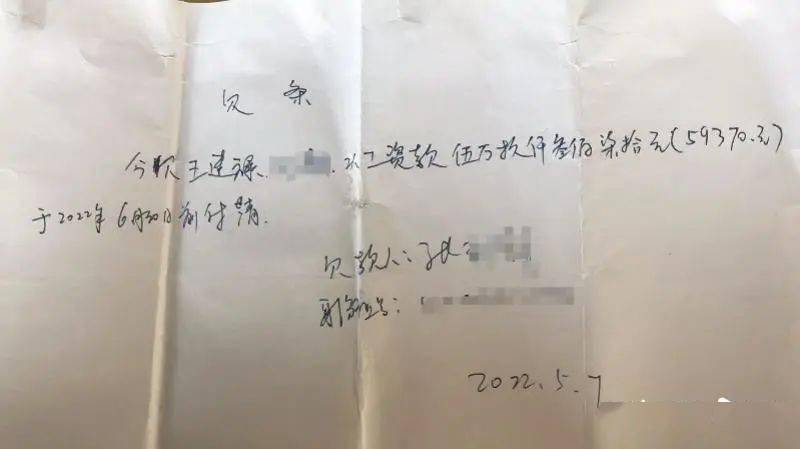 欠条
今欠王建 工资款伍万玖仟叁佰柒拾元(59370.元)
于2022年6月30日前付清.
欠款人:张
身份证号:
2022.5.7